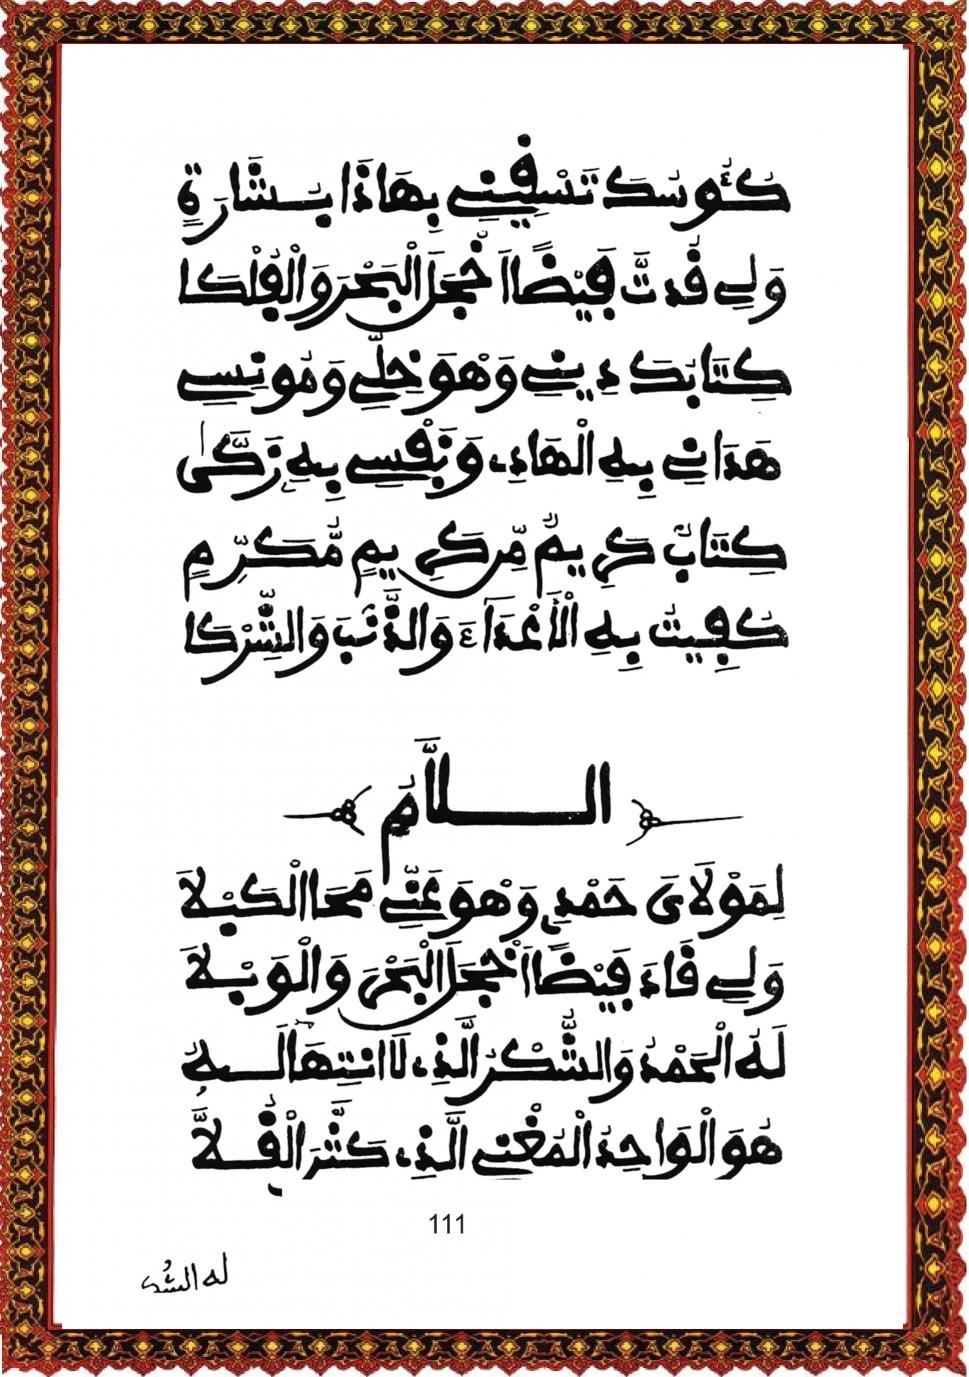 كُئُوسُكَ تَسْقِينِي بِهَاذَا بِشَارَةٍ
وَلِي قُدتَّ فَيْضًا اَخْجَلَ الْبَحْرَ وَالْفُلْكَا
كِتَابُكَ دِينِي وَهْوَ خِلِّي وَمُونِسِي
هَدَانِي بِهِ الْهَادِي وَنَفْسِي بِهِ زَكَّى
كِتَابٌ كَرِيمٌ مِّن كَرِيمٍ مُّكَرِّمٍ
كُفِيتُ بِهِ الْأَعْدَآءَ وَالذَّنبَ وَالشِّرْكَا
اللَّامُ
لِمَوْلَايَ حَمْدِي وَهْوَ عَنِّي مَحَا الْكَبْلَا
وَلِي قَادَ فَيْضًا اَخْجَلَ الْبَحْرَ وَالْوَبْلَا
لَهُ الْحَمْدُ وَالشُّكْرُ الَّذِي لَا انتِهَا لَهُ
هُوَ الْوَاحِدُ الْمُغْنِي الَّذِي كَثَّرَ الْقُلَّا
111
له الشُّكـ